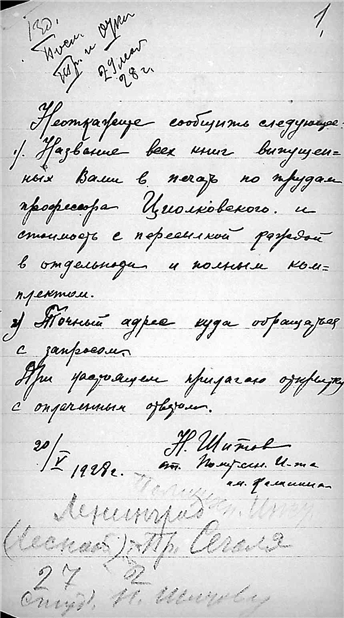 1,
130.
Посл.
29 мая
28 г.
сообщить следующее:
1). Название всех книг выпущен-
ных Вами в печать по трудам
профессора Циолковского. и
стоимость с пересылкой каждой
в отдельности и полным ком-
плектом.
2) Точный адрес куда обращаться
с запросом.
При настоящем прилагаю открытку
с оплаченным ответом.
20/V 1928 г.
Н. Шитов
ст. Политехн. И-та
Ленинград
(Лесной)
27
студ. Н. Шитову